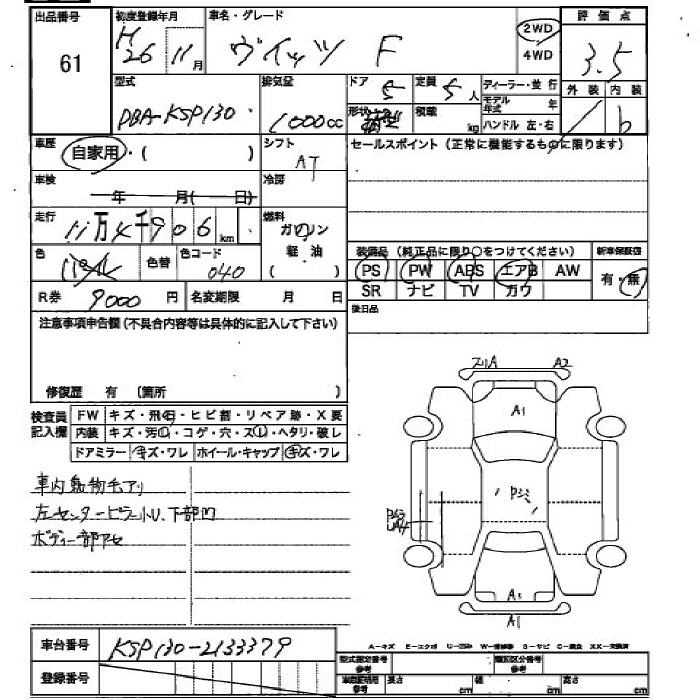 出品番号 初度登録年月 車名・グレード 評価点
61 H26 11月 ヴィッツ F 2WD 4WD 3.5
型式 排気量 ドア 5 定員 5人 ディーラー・並行 外装 内装
DBA-KSP130 1000cc 形状 積載 kg モデル年式 年 b
ハンドル 左・右
車歴 自家用・( ) シフト AT セールスポイント(正常に機能するものに限ります)
車検 年 月(日) 冷房
走行 11万4千906km 燃料 ガソリン
軽油
( )
色 パール 色替 色コード 040
装備品(純正品に限り○をつけてください) 新車保証書
PS PW ABS エアB AW 有・無
SR ナビ TV カワ
R券 9000円 名変期限 月 日
後日品
注意事項申告欄(不具合内容等は具体的に記入して下さい)
修復歴 有 (箇所 )
検査員記入欄 FW キズ・飛石・ヒビ割・リペア跡・X要
内装 キズ・汚れ・コゲ・穴・スレ・ヘタリ・破レ
ドアミラー キズ・ワレ ホイール・キャップ キズ・ワレ
車内動物毛アリ
左センターピラー小U、下部凹
ボディー部アセ
A2
A1
A1
車台番号 KSP130-2133379
登録番号
A-キズ E-エクボ U-凹み W-補修跡 S-サビ C-腐食 XX-交換済
型式指定番号 参考 類別区分番号 参考
車庫証明用 参考 長さ cm 幅 cm 高さ cm